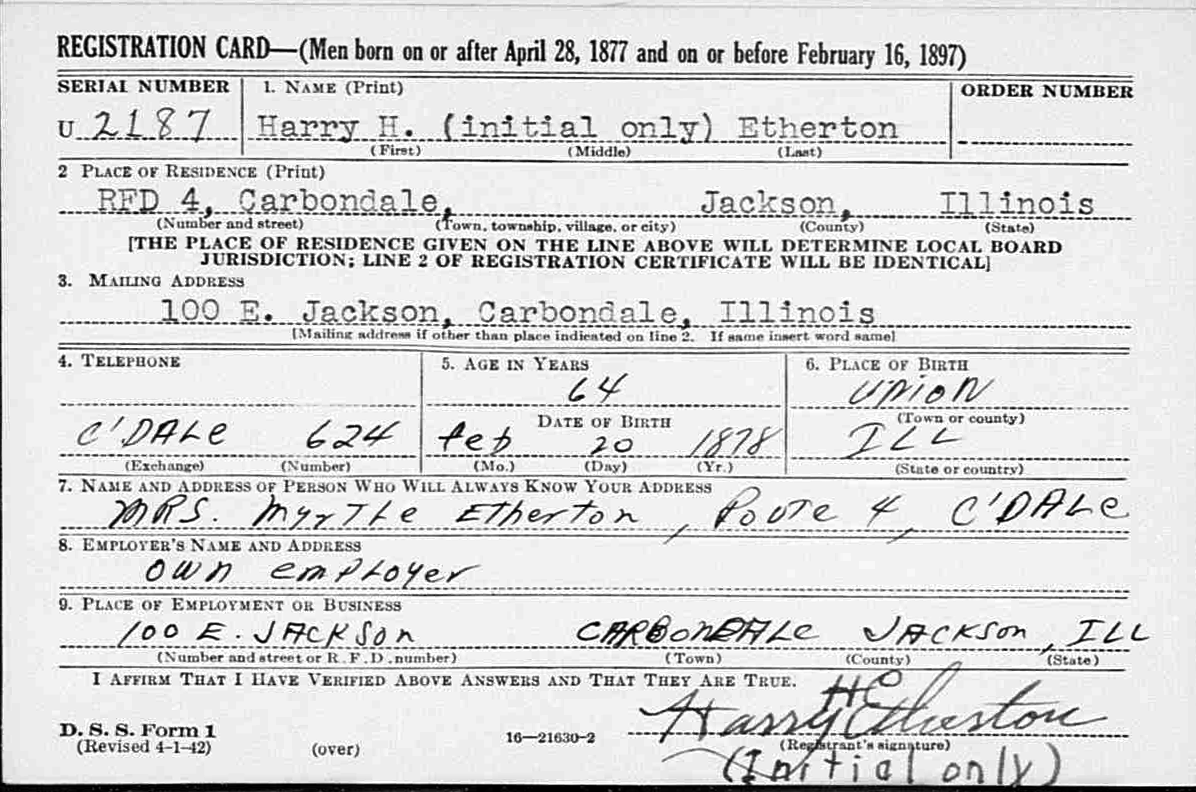 REGISTRATION CARD—(Men born on or after April 28, 1877 and on or before February 16, 1897)
SERIAL NUMBER 1. NAME (Print) ORDER NUMBER
U 2187 Harry H. (initial only) Etherton
(First) (Middle) (Last)
2 PLACE OF RESIDENCE (Print)
RFD 4, Carbondale, Jackson, Illinois
(Number and street) (Town, township, village, or city) (County) (State)
[THE PLACE OF RESIDENCE GIVEN ON THE LINE ABOVE WILL DETERMINE LOCAL BOARD
JURISDICTION; LINE 2 OF REGISTRATION CERTIFICATE WILL BE IDENTICAL]
3. MAILING ADDRESS
100 E. Jackson, Carbondale, Illinois
[Mailing address if other than place indicated on line 2. If same insert word same]
4. TELEPHONE 5. AGE IN YEARS 6. PLACE OF BIRTH
64 UNION
DATE OF BIRTH (Town or county)
C'DALE 624 Feb 20 1878 ILL
(Exchange) (Number) (Mo.) (Day) (Yr.) (State or country)
7. NAME AND ADDRESS OF PERSON WHO WILL ALWAYS KNOW YOUR ADDRESS
MRS. Myrtle Etherton, Route 4, C'DALE
8. EMPLOYER'S NAME AND ADDRESS
own employer
9. PLACE OF EMPLOYMENT OR BUSINESS
100 E. JACKSON CARBONDALE JACKSON, ILL
(Number and street or R. F. D. number) (Town) (County) (State)
I AFFIRM THAT I HAVE VERIFIED ABOVE ANSWERS AND THAT THEY ARE TRUE.
H
Harry Etherton
D. S. S. Form 1
(Revised 4-1-42) (over) 16—21630-2 (Registrant's signature)
(Initial only)